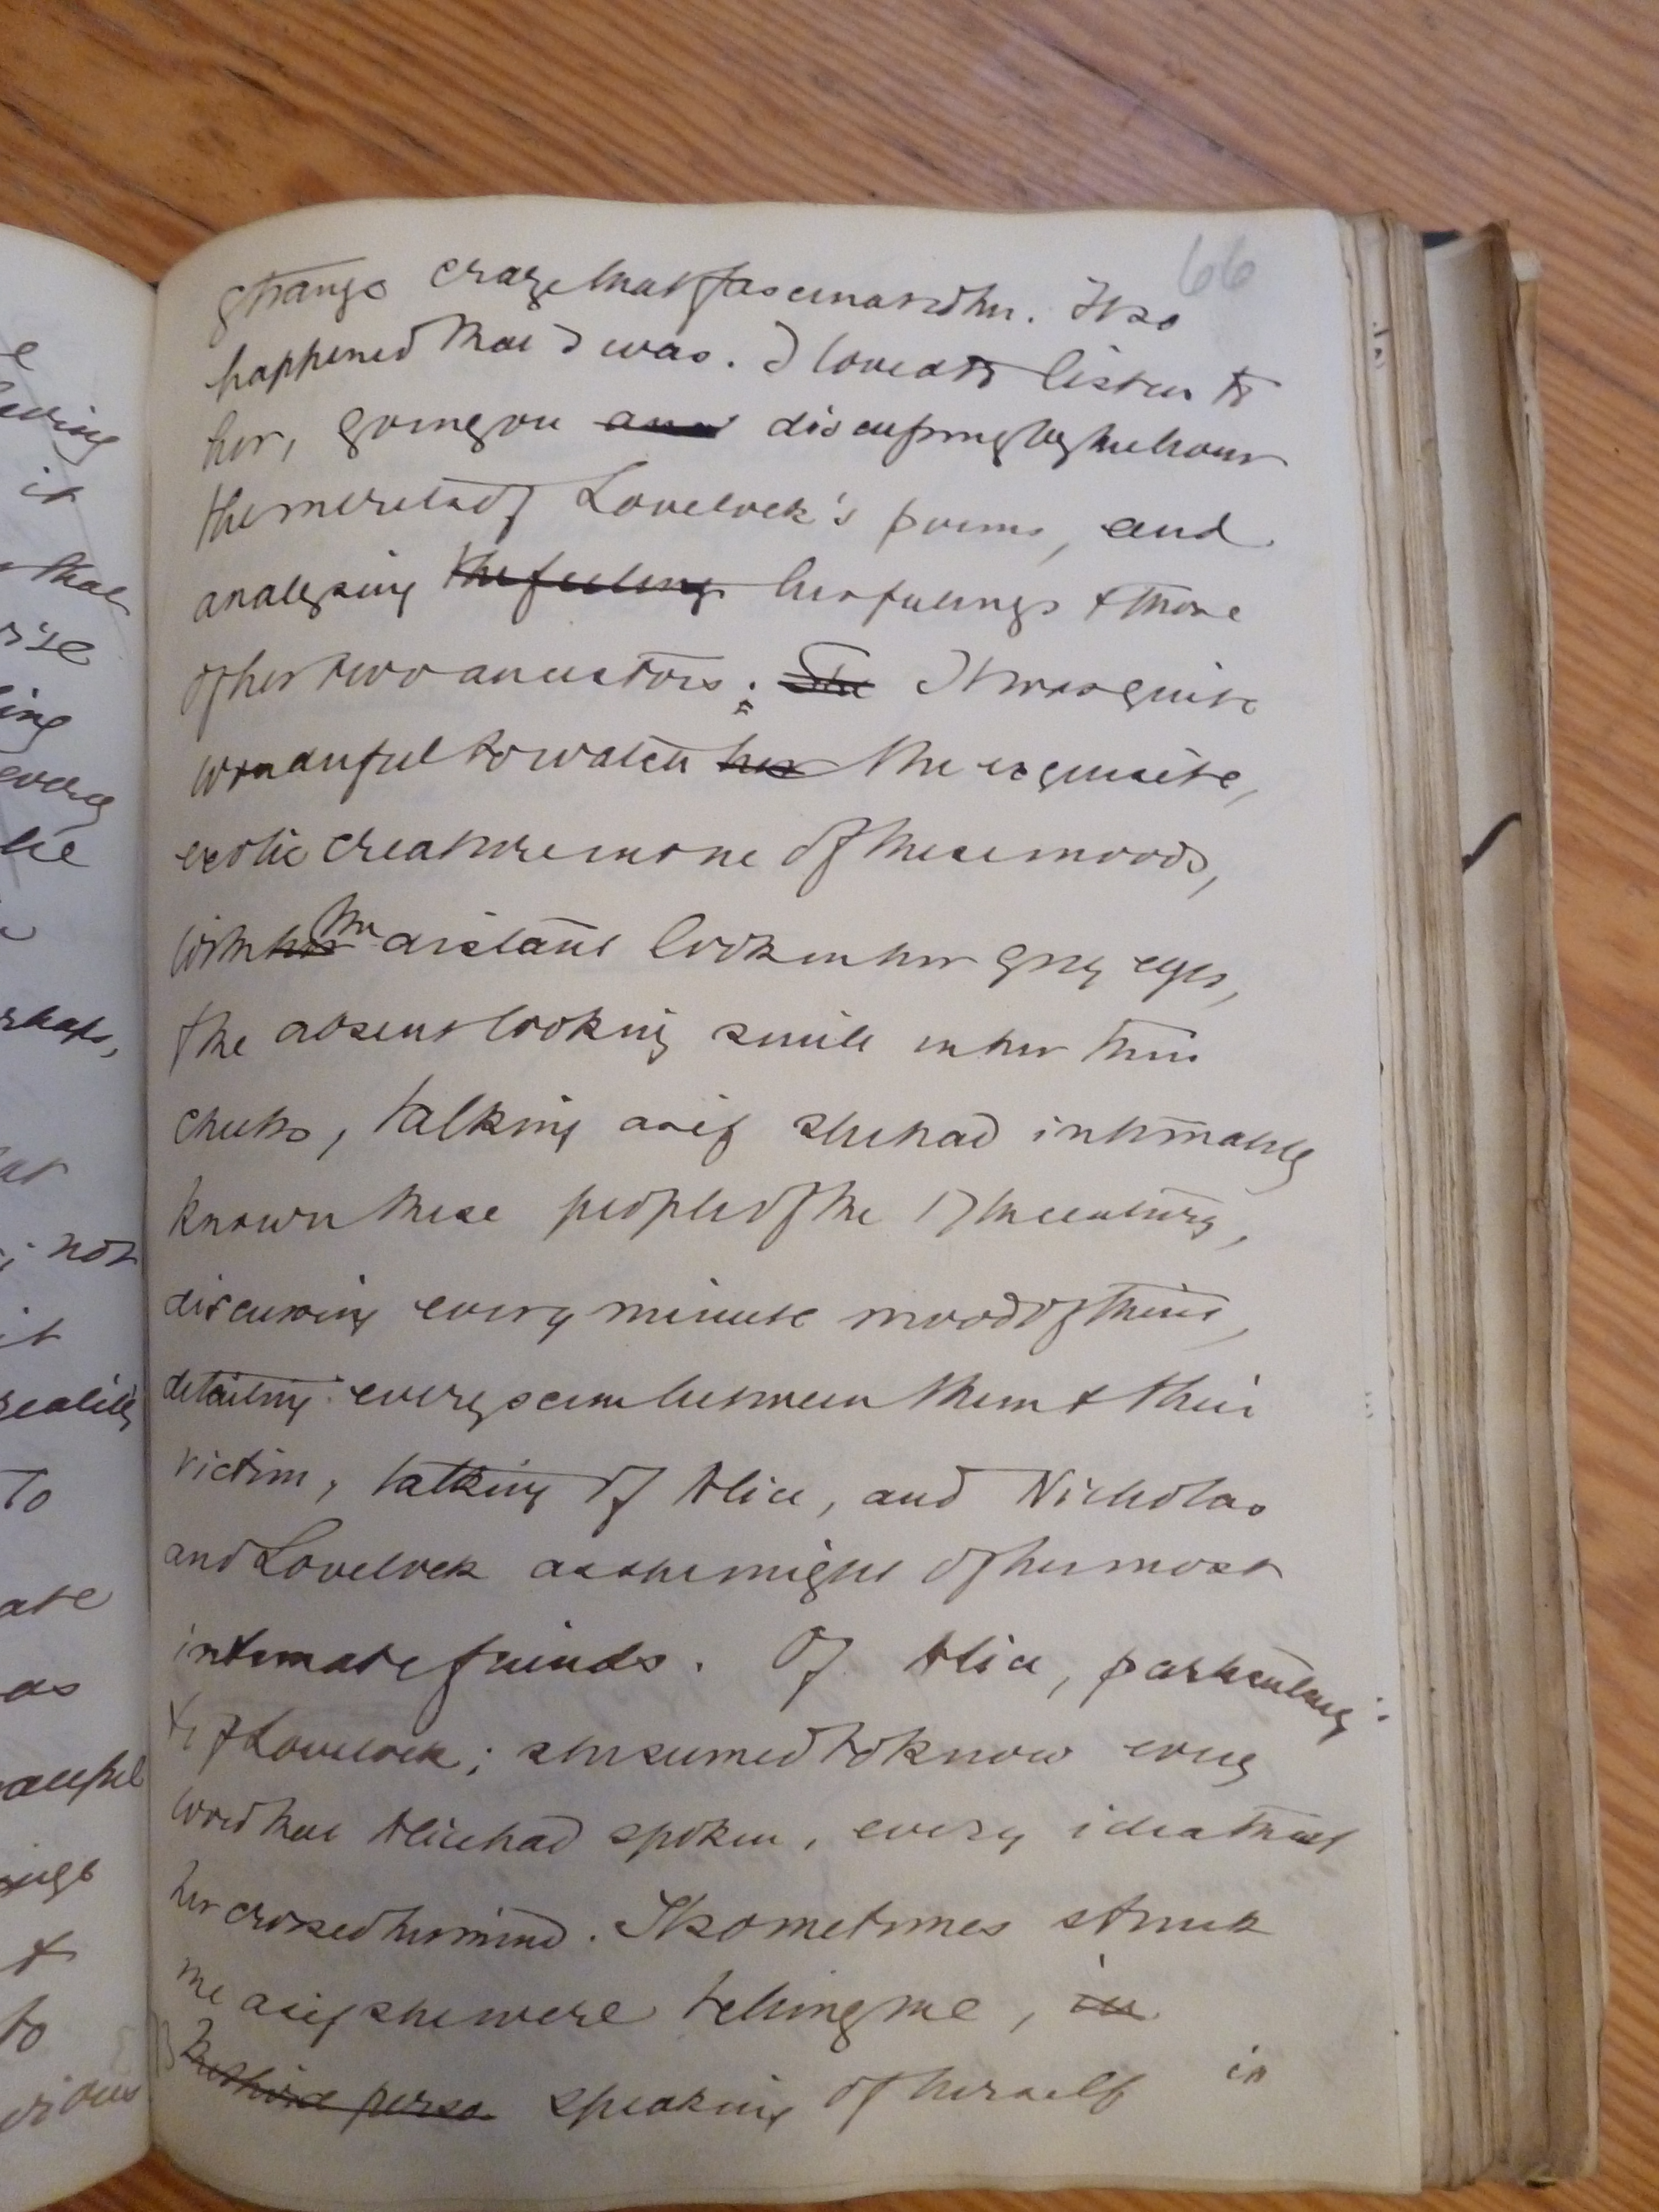 66
strange craze that fascinated her. It so
happened that I was. I loved to listen to
her, going on and discussing by the hour
the merits of Lovelock's poems, and
analysing the feelings her feelings & those
of her two ancestors; She It was quite
wonderful to watch her the exquisite,
exotic creature in one of these moods,
with her the distant look in her grey eyes,
the absent looking smile in her thin
cheeks, talking as if she had intimately
known these people of the 17th century,
discussing every minute mood of theirs,
detailing every scene between them & their
victim, talking of Alice, and Nicholas
and Lovelock as she might of her most
intimate friends. Of Alice, particularly;
& of Lovelock; she seemed to know every
word that Alice had spoken, every idea that
her crossed her mind. It sometimes struck
me as if she were telling me, in
the third perso speaking of herself in
e
it
that
ing
every
not
it
reality
To
as
&
to